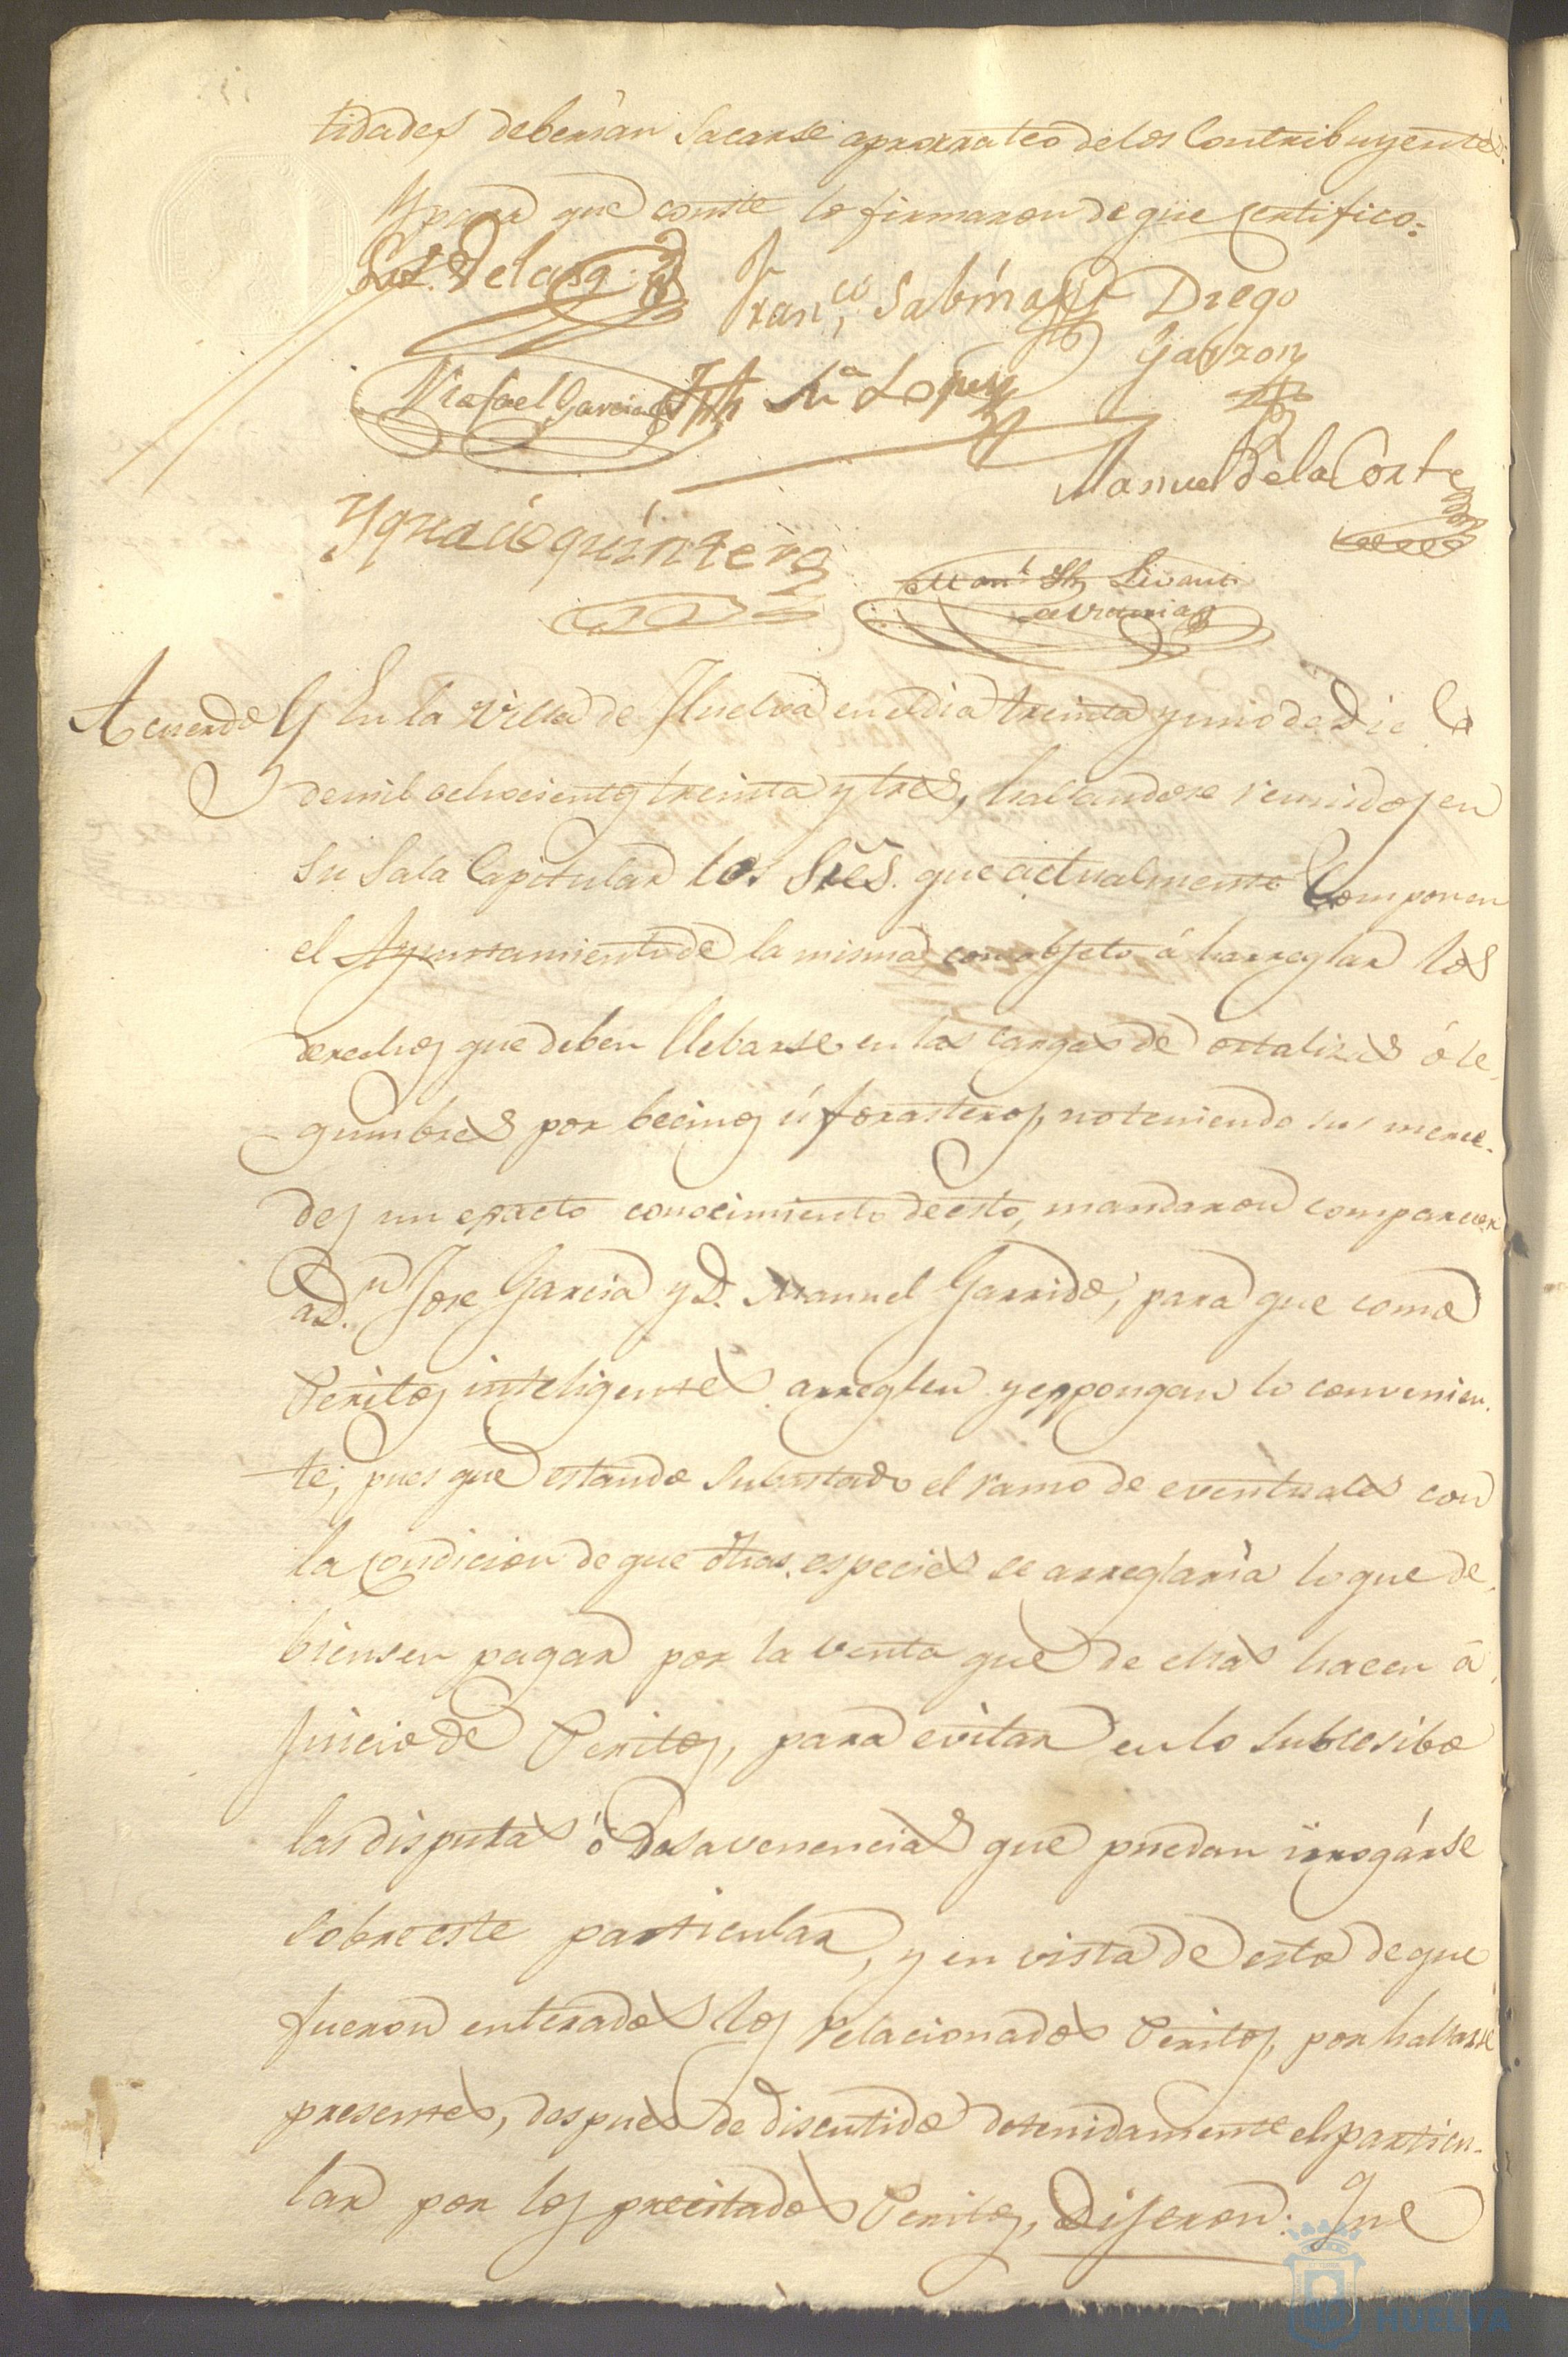 tidades deberian Sacarse aprorrateo de los Contribuyentes:
Y para que conste lo firmaron de que certifico=
Franco. Sabina Diego
Garzon
Rafael Garcia Ma Lopez
Manuel De la Corte
Ygnacio quintero
Manl
Acuerdo En la Villa de Huelva en el dia treinta y uno de Dice
de mil ochocientos treinta y tres, hallandose reunidos en
su Sala Capitular los Sres. que actualmente Componen
el Ayuntamiento de la misma con objeto á harreglar los
derechos que deben llebarse en las cargas de ortalizas ó le-
gumbres por becinos ú forasteros, no teniendo sus merce-
des un exacto conocimiento de esto, mandaron comparecer
a Dn. Jose Garcia y D. Manuel Garrido, para que como
Peritos inteligentes arreglen y expongan lo convenien-
te, pues que estando Subastado el ramo de eventuales con
la Condicion de que otras especies se arreglaria lo que de-
biensen pagar por la venta que de ellas hacen á
Juicio de Peritos, para evitar en lo Subcesibo
las disputas ó Desavenencias que puedan irrogárse
sobre este particular, y en vista de esto de que
fueron enterados los relacionados Peritos, por hallarse
presentes, despues de discutido detenidamente el particu-
lar por los precitados Peritos, Dijeron: Que
HUELVA